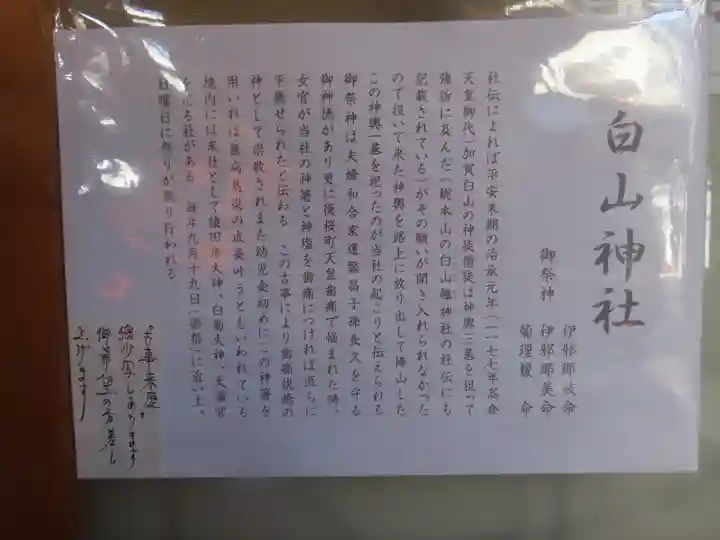 白山神社
御祭神 伊邪那岐命
伊邪那美命
菊理媛命
社伝によれば平安末期の治承元年(一一七七年高倉
天皇御代)加賀白山の神徒僧徒は神輿三基を担って
強訴に及んだ(総本山の白山比神社の社伝にも
記載されている)がその願いが聞き入れられなかった
ので担いて来た神輿を路上に放り出して帰山した
この神輿一基を祀ったのが当社の起こりと伝えられる
御祭神は夫婦和合家運繁昌子孫長久を守る
御神徳があり更に後桜町天皇歯痛で悩まれた時、
女官が当社の神箸と神塩を歯痛につければ直らに
平癒せられたと伝わる この古事により歯痛快癒の
神として崇敬されまた幼児食初めにこの神箸を
用いれば無病息災の成長叶うともいわれている
境内には末社として猿田彦大神、白菊大神、天満宮
を祀る社がある 毎年九月十九日(祭)に近い上、
日曜日に祭りが執り行われる
古事来歴
縮少写しあります
御希望の方差し
上げます